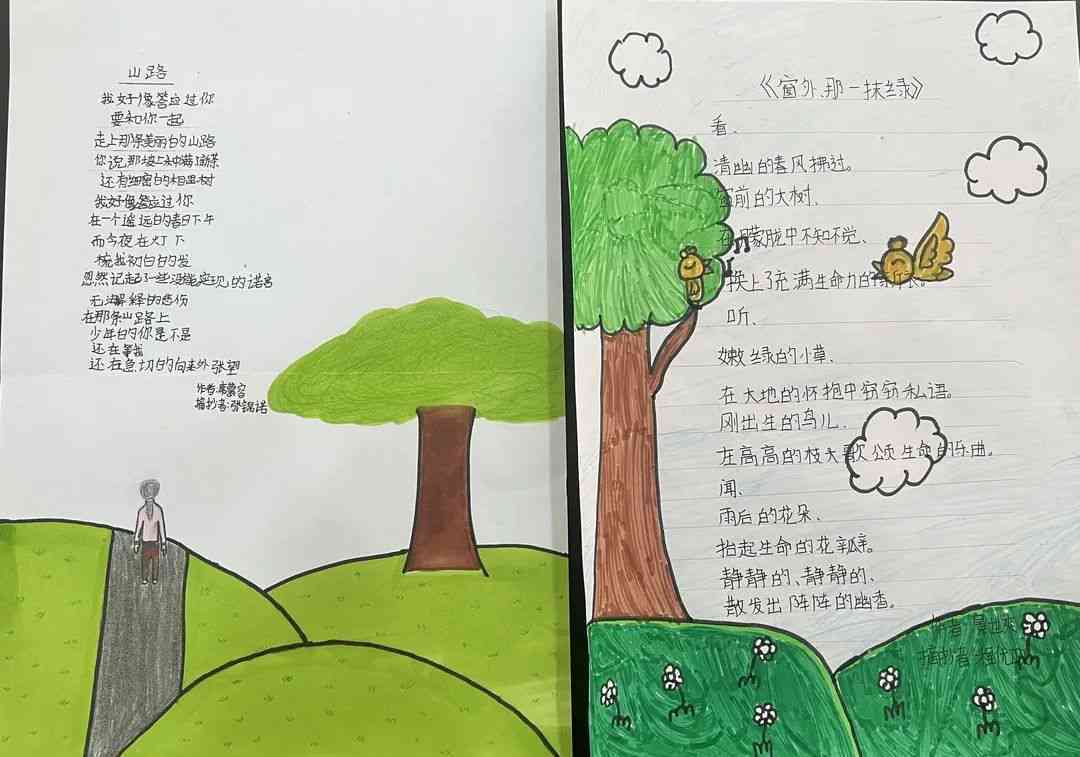 山路
我好像答应过你
要和你一起
走上那条美丽的山路
你说,那坡上种满了新茶
还有细密的相思树
我好像答应过你
在一个遥远的春日下午
而今夜在灯下
梳我初白的发
忽然记起了一些没能实现的诺言
无法解释的悲伤
在那条山路上
少年的你是不是
还在等我
还在急切的向来处张望
作者:席慕容
摘抄者:张锦诺
《窗外、那一抹绿》
看、
清幽的春风拂过。
窗前的大树、
在朦胧中不知不觉、
换上了充满生命力的绿衣。
听、
嫩绿的小草、
在大地的怀抱中窃窃私语。
刚出生的鸟儿、
在高高的枝头歌颂生命的乐曲。
闻、
雨后的花朵、
抬起生命的花瓣。
静静的、静静的、
散发出阵阵的幽香。
作者
摘抄者